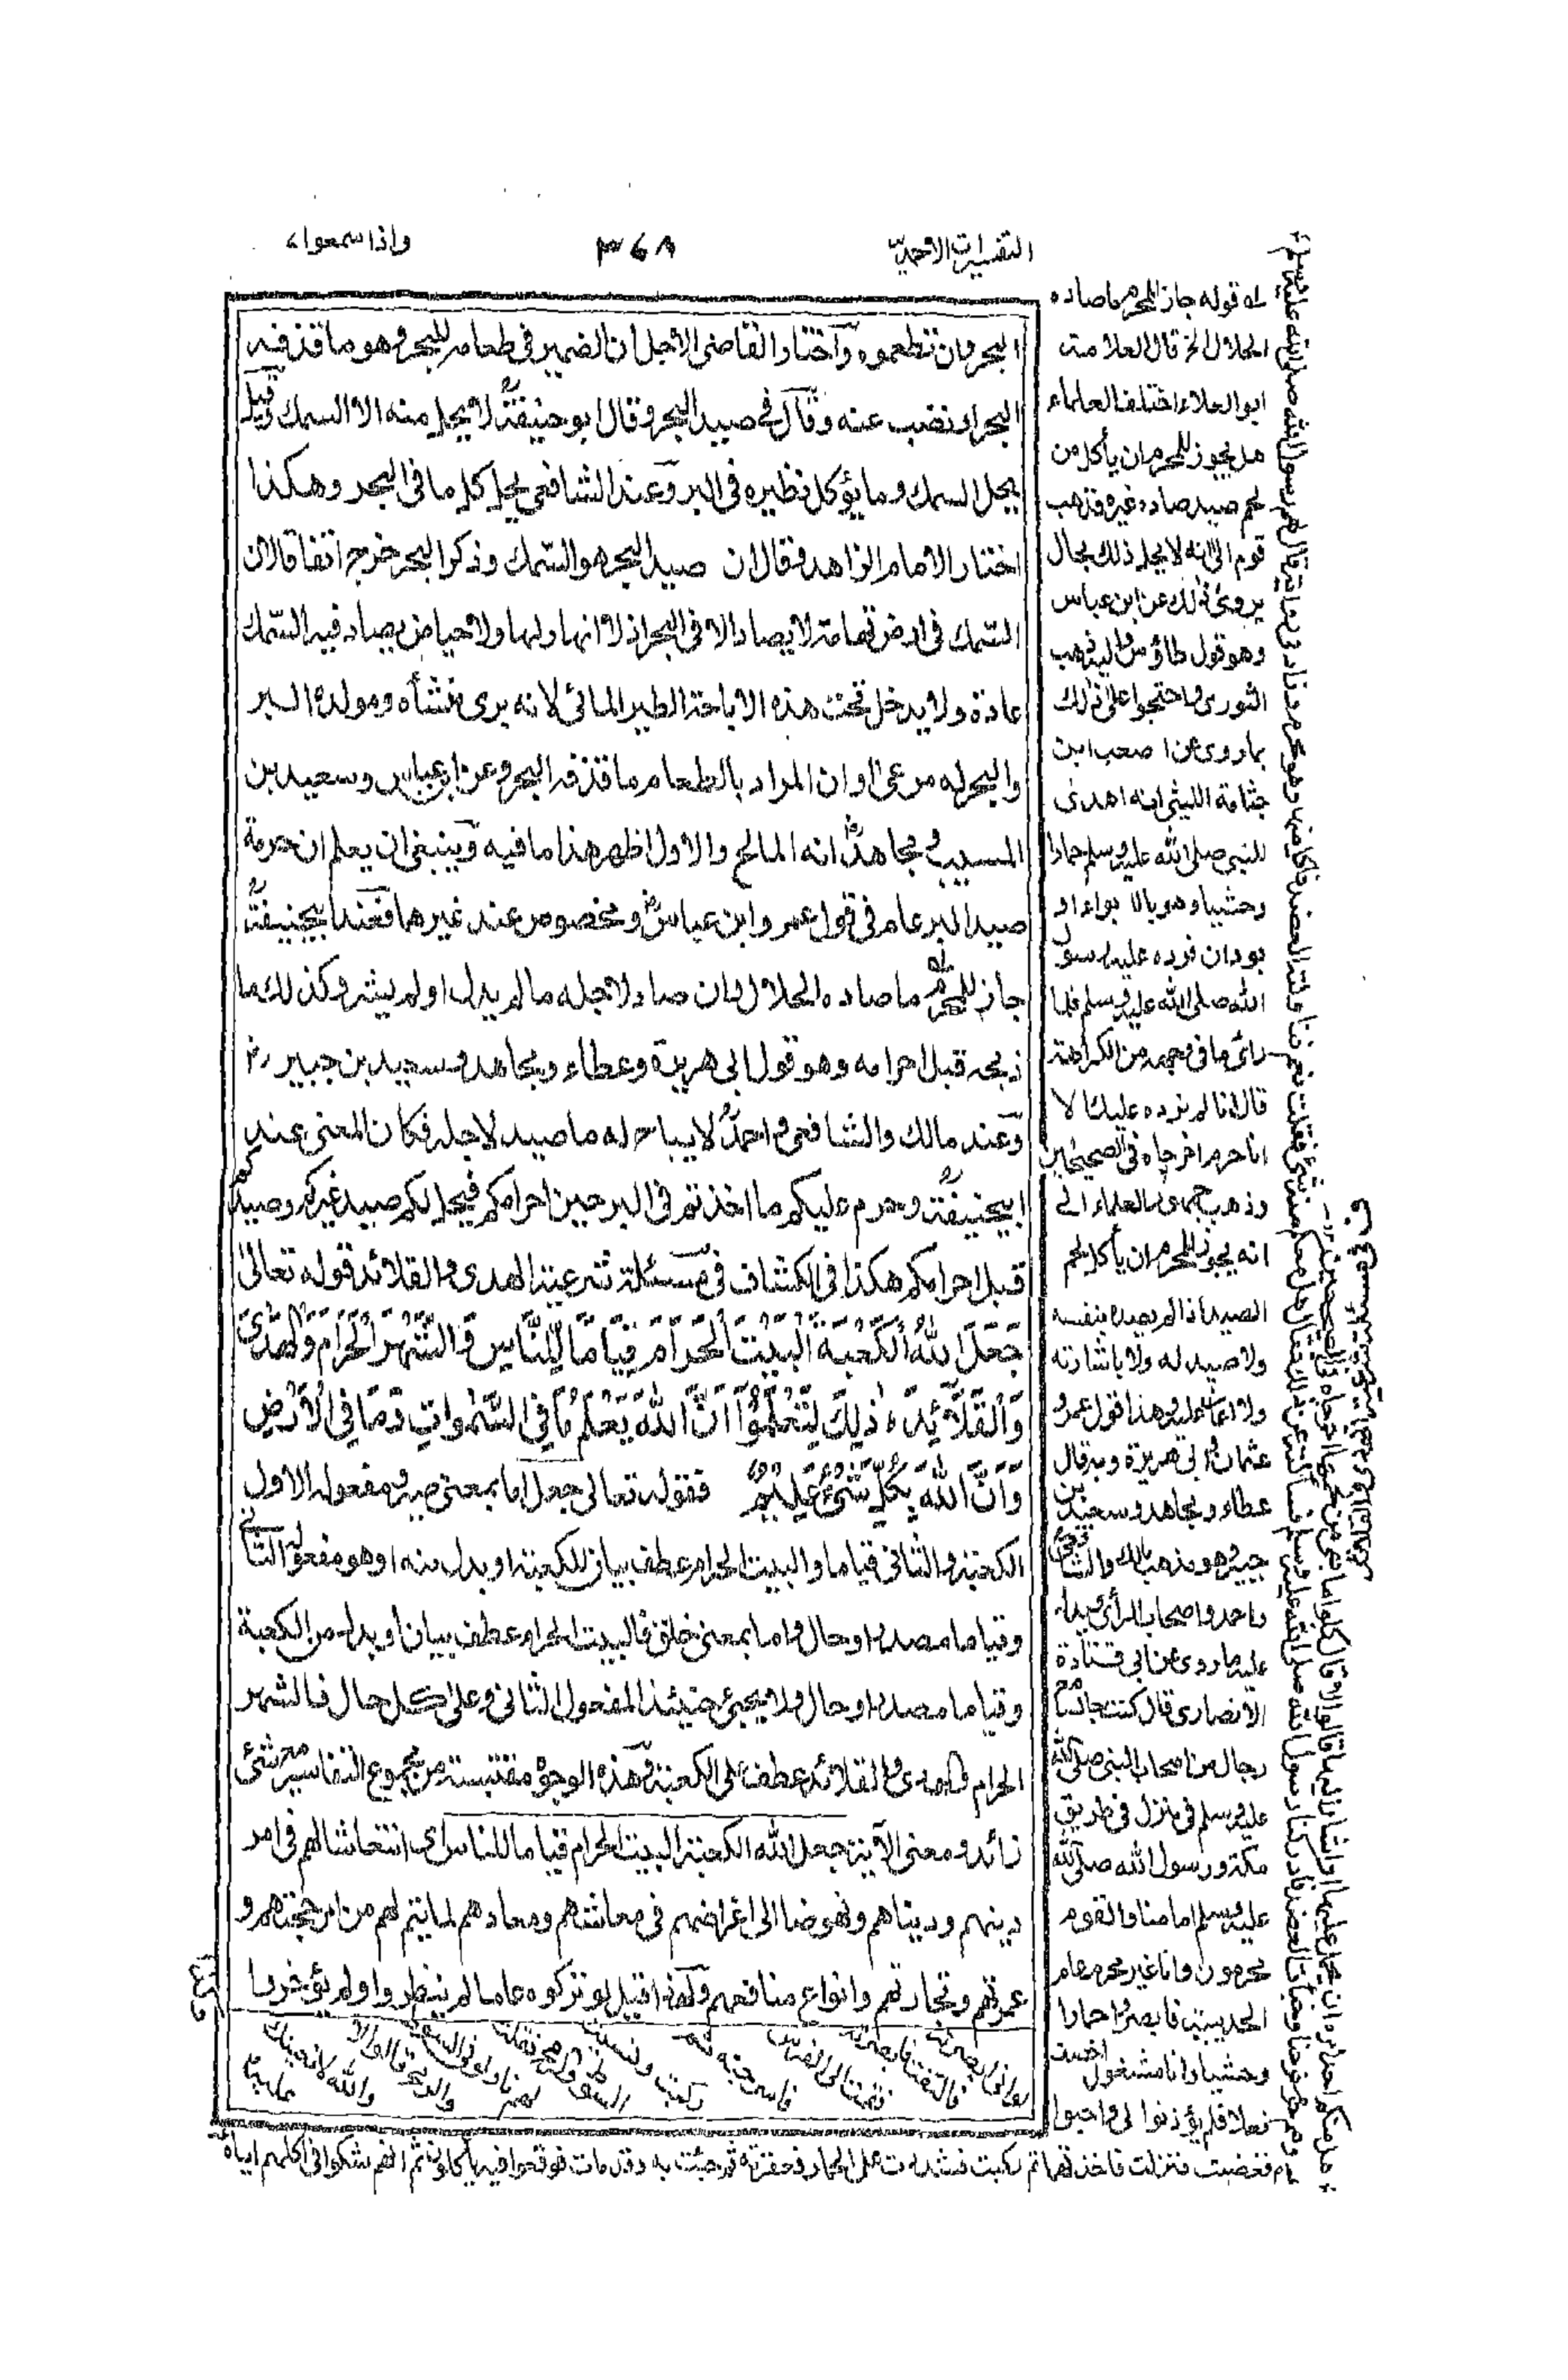 التفسيرات الاحمديّة
٣٦٨
واذا سمعوا ٧
البحر وان تطعموه وآختار القاضي الاجل ان الضمير في طعامه للبحر وهو ما قذفه
البحر او نضب عنه وقال في صيد البحر وقال ابو حنيفةؒ لا يحل منه الا السمك وقيل
يحل السمك وما يؤكل نظيره في البر وعند الشافعي يحل كل ما في البحر وهكذا
اختار الامام الزاهد وقال ان صيد البحر هو السّمك وذكر البحر خرج اتفاقا لان
السّمك في ارض تهامة لا يصاد الا في البحر اذ لا انهار لها ولا حياض يصاد فيه السّمك
عادة ولا يدخل تحت هذه الاباحة الطير المائي لانه بري منشأه ومولده البر
والبحر له مرعى او ان المراد بالطعام ما قذفه البحر وعن ابن عباس وسعيد بن
المسيب ومجاهدؒ انه المالح والاول اظهر هذا ما فيه وينبغي ان يعلم ان حرمة
صيد البر عام في قول عمر وابن عباسؓ ومخصوص عند غيرهما فعند ابيحنيفةؒ
جاز للمحرم ما صاده الحلال وان صاد لاجله ما لم يدل او لم يشر وكذلك ما
ذبحه قبل احرامه وهو قول ابي هريرة وعطاء ومجاهد وسعيد بن جبير رض
وعند مالك والشافعي واحمدؒ لا يباح له ما صيد لاجله فكان المعنى عند
ابيحنيفةؒ وحرم عليكم ما اخذتم في البر حين احرامكم فيحل لكم صيد غيركم وصيدكم
قبل احرامكم هكذا في الكشاف في مسئلة شرعية الهدى والقلائد قوله تعالى
جَعَلَ اللّٰهُ الْكَعْبَةَ الْبَيْتَ الْحَرَامَ قِيَامًا لِّلنَّاسِ وَالشَّهْرَ الْحَرَامَ وَالْهَدْىَ
وَالْقَلَآئِدَ ذٰلِكَ لِتَعْلَمُوْٓا اَنَّ اللّٰهَ يَعْلَمُ مَا فِى السَّمٰوَاتِ وَمَا فِى الْاَرْضِ
وَاَنَّ اللّٰهَ بِكُلِّ شَىْءٍ عَلِيْمٌ فقوله تعالى جعل اما بمعنى صير ومفعوله الاول
الكعبة والثاني قياما والبيت الحرام عطف بيان للكعبة او بدل منه او هو مفعوله الثاني
وقياما مصدر او حال واما بمعنى خلق فالبيت الحرام عطف بيان او بدل من الكعبة
وقياما مصدر او حال ولا يجئ حينئذ المفعول الثاني وعلى كل حال فالشهر
الحرام والهدى والقلائد عطف على الكعبة وهذه الوجوه مقتبسة من مجموع التفاسير مع شئ
زائد ومعنى الآية جعل الله الكعبة البيت الحرام قياما للناس اى انتعاشا لهم في امر
دينهم ودنياهم ونهوضا الى اغراضهم في معاشهم ومعادهم لما يتم لهم من امر حجتهم و
عمرتهم وتجارتهم وانواع منافعهم ولهذا قيل لو تركوه عاما لم ينظروا ولم يؤخروا
له قوله جاز للمحرم ما صاده
الحلال الخ قال العلامة
ابو العلاء اختلف العلماء
هل يجوز للمحرم ان يأكل من
لحم صيد صاده غيره فذهب
قوم الى انه لا يحل ذلك بحال
يروى ذلك عن ابن عباس
وهو قول طاؤس واليه ذهب
الثوري واحتجوا على ذلك
بما روى عن صعب ابن
جثامة الليثي انه اهدى
للنبي صلى الله عليه وسلم حمارا
وحشيا وهو بالابواء او
بودان فرده عليه رسول
الله صلى الله عليه وسلم فلما
رائ ما في وجهه من الكراهة
قال انا لم نرده عليك الا
انا حرم اخرجاه في الصحيحين
وذهب جمهور العلماء الى
انه يجوز للمحرم ان يأكل لحم
الصيد اذا لم يصيده بنفسه
ولا صيد له ولا باشارته
ولا اعان عليه وهذا قول عمر و
عثمان وابي هريرة وبه قال
عطاء ومجاهد وسعيد بن
جبير وهو مذهب مالك والشافعي
واحمد واصحاب الرأي ويدل
عليه ما روى عن ابي قتادة
الانصاري قال كنت جالسا مع
رجال من اصحاب النبي صلى الله
عليه وسلم في منزل في طريق
مكة ورسول الله صلى الله
عليه وسلم امامنا والقوم
محرمون وانا غير محرم عام
الحديبية فابصروا حمارا
وحشيا وانا مشغول اخصف
نعلا فلم يؤذنوا لي واحبوا
لو اني ابصرته
فالتفت فابصرته
فقمت الى الفرس
فاسرجته ثم
ركبت ونسيت
السوط والرمح فقلت
لهم ناولوني السوط
والرمح قالوا لا
والله لا نعينك
عليه
فغضبت فنزلت فاخذتهما ثم ركبت فشددت على الحمار فعقرته ثم جئت به وقد مات فوقعوا فيه يأكلونه ثم انهم شكوا في اكلهم اياه